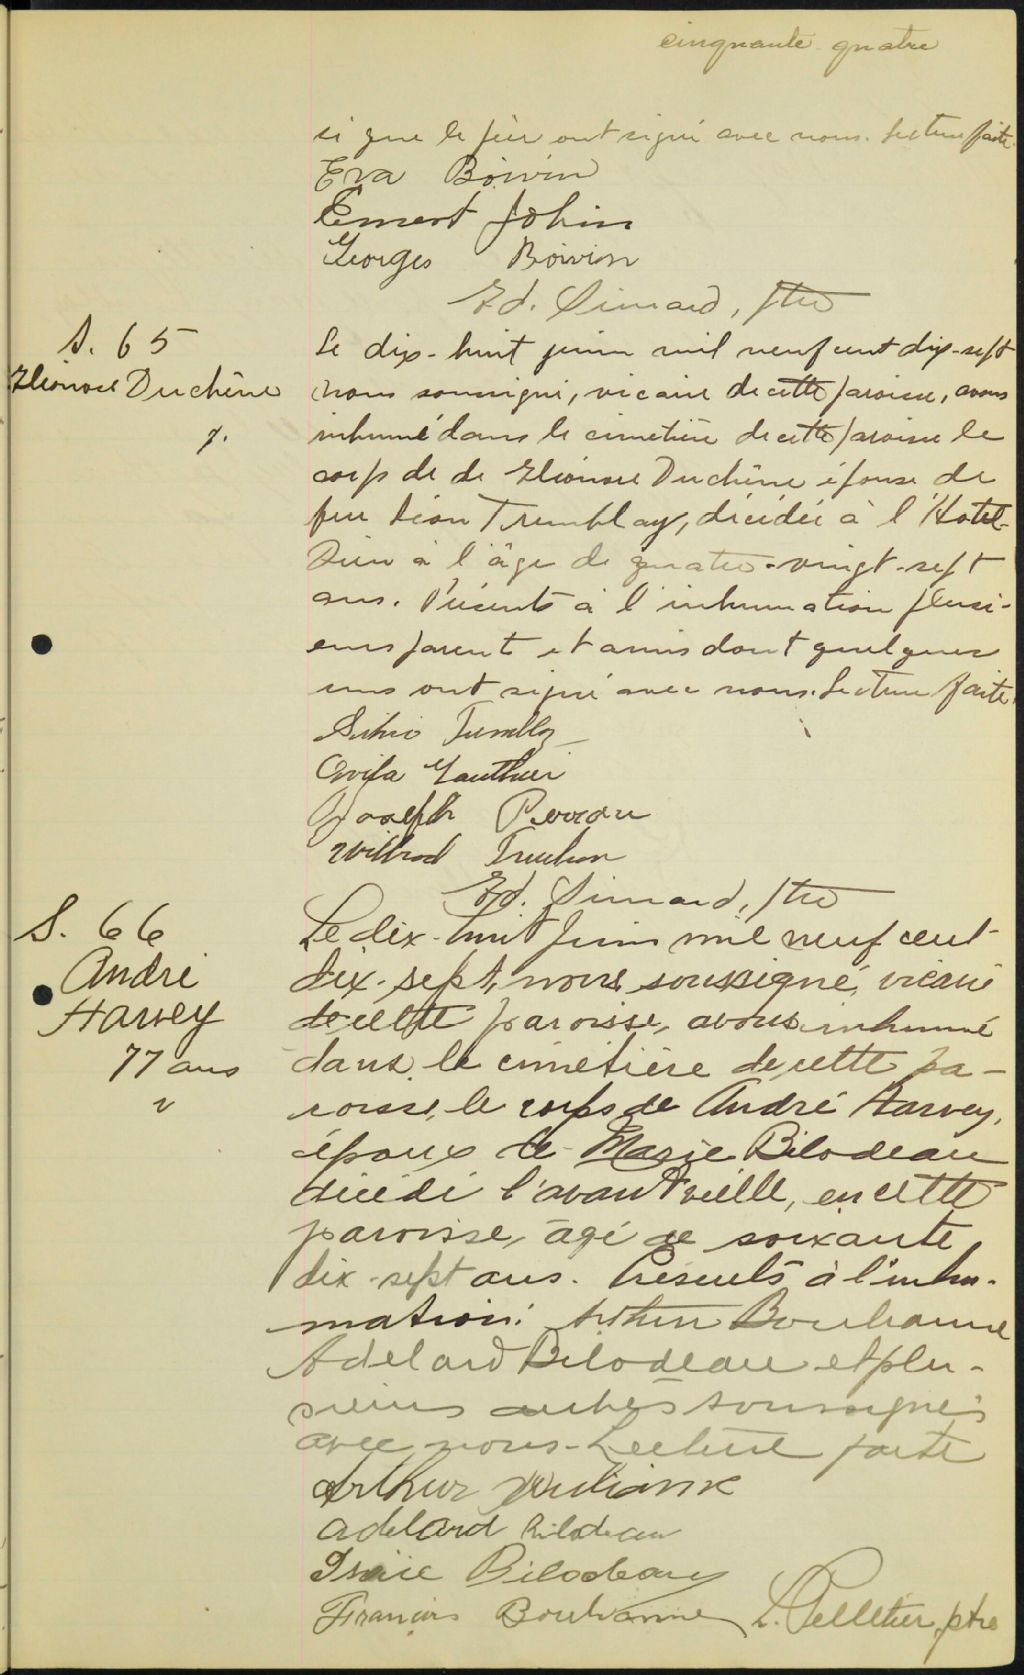 cinquante quatre
si que le père ont signé avec nous. Lecture faite.
Eva Boivin
Ernest John
Georges Boivin
Ed. Simard, ptre
S. 65
Eléonore Duchêne
Le dix-huit juin mil neuf cent dix-sept
nous soussigné, vicaire de cette paroisse, avons
inhumé dans le cimetière de cette paroisse le
corps de de Eléonore Duchêne épouse de
feu Léon Tremblay, décédée à l'Hotel-
Dieu à l'âge de quatre-vingt-sept
ans. Présents à l'inhumation plusi-
eurs parents et amis dont quelques
uns ont signé avec nous. Lecture faite.
Tremblay
Gauthier
Joseph
Wilfrod Truchon
Ed. Simard, ptre
S. 66
André
Harvey
77 ans
Le dix-huit juin mil neuf cent-
dix-sept, nous soussigné, vicaire
de cette paroisse, avons inhumé
dans le cimetière de cette pa-
roisse, le corps de André Harvey,
époux de Marie Bilodeau
décédé l'avant veille, en cette
paroisse, âgé de soixante
dix-sept ans. Présents à l'inhu-
mation: Arthur Boulianne
Adelard Bilodeau et plu-
sieurs autres soussignés
avec nous. Lecture faite
Arthur Bouliane
Adelard Bilodeau
Isaïe Bilodeau
François Boulianne L. Pelletier, ptre